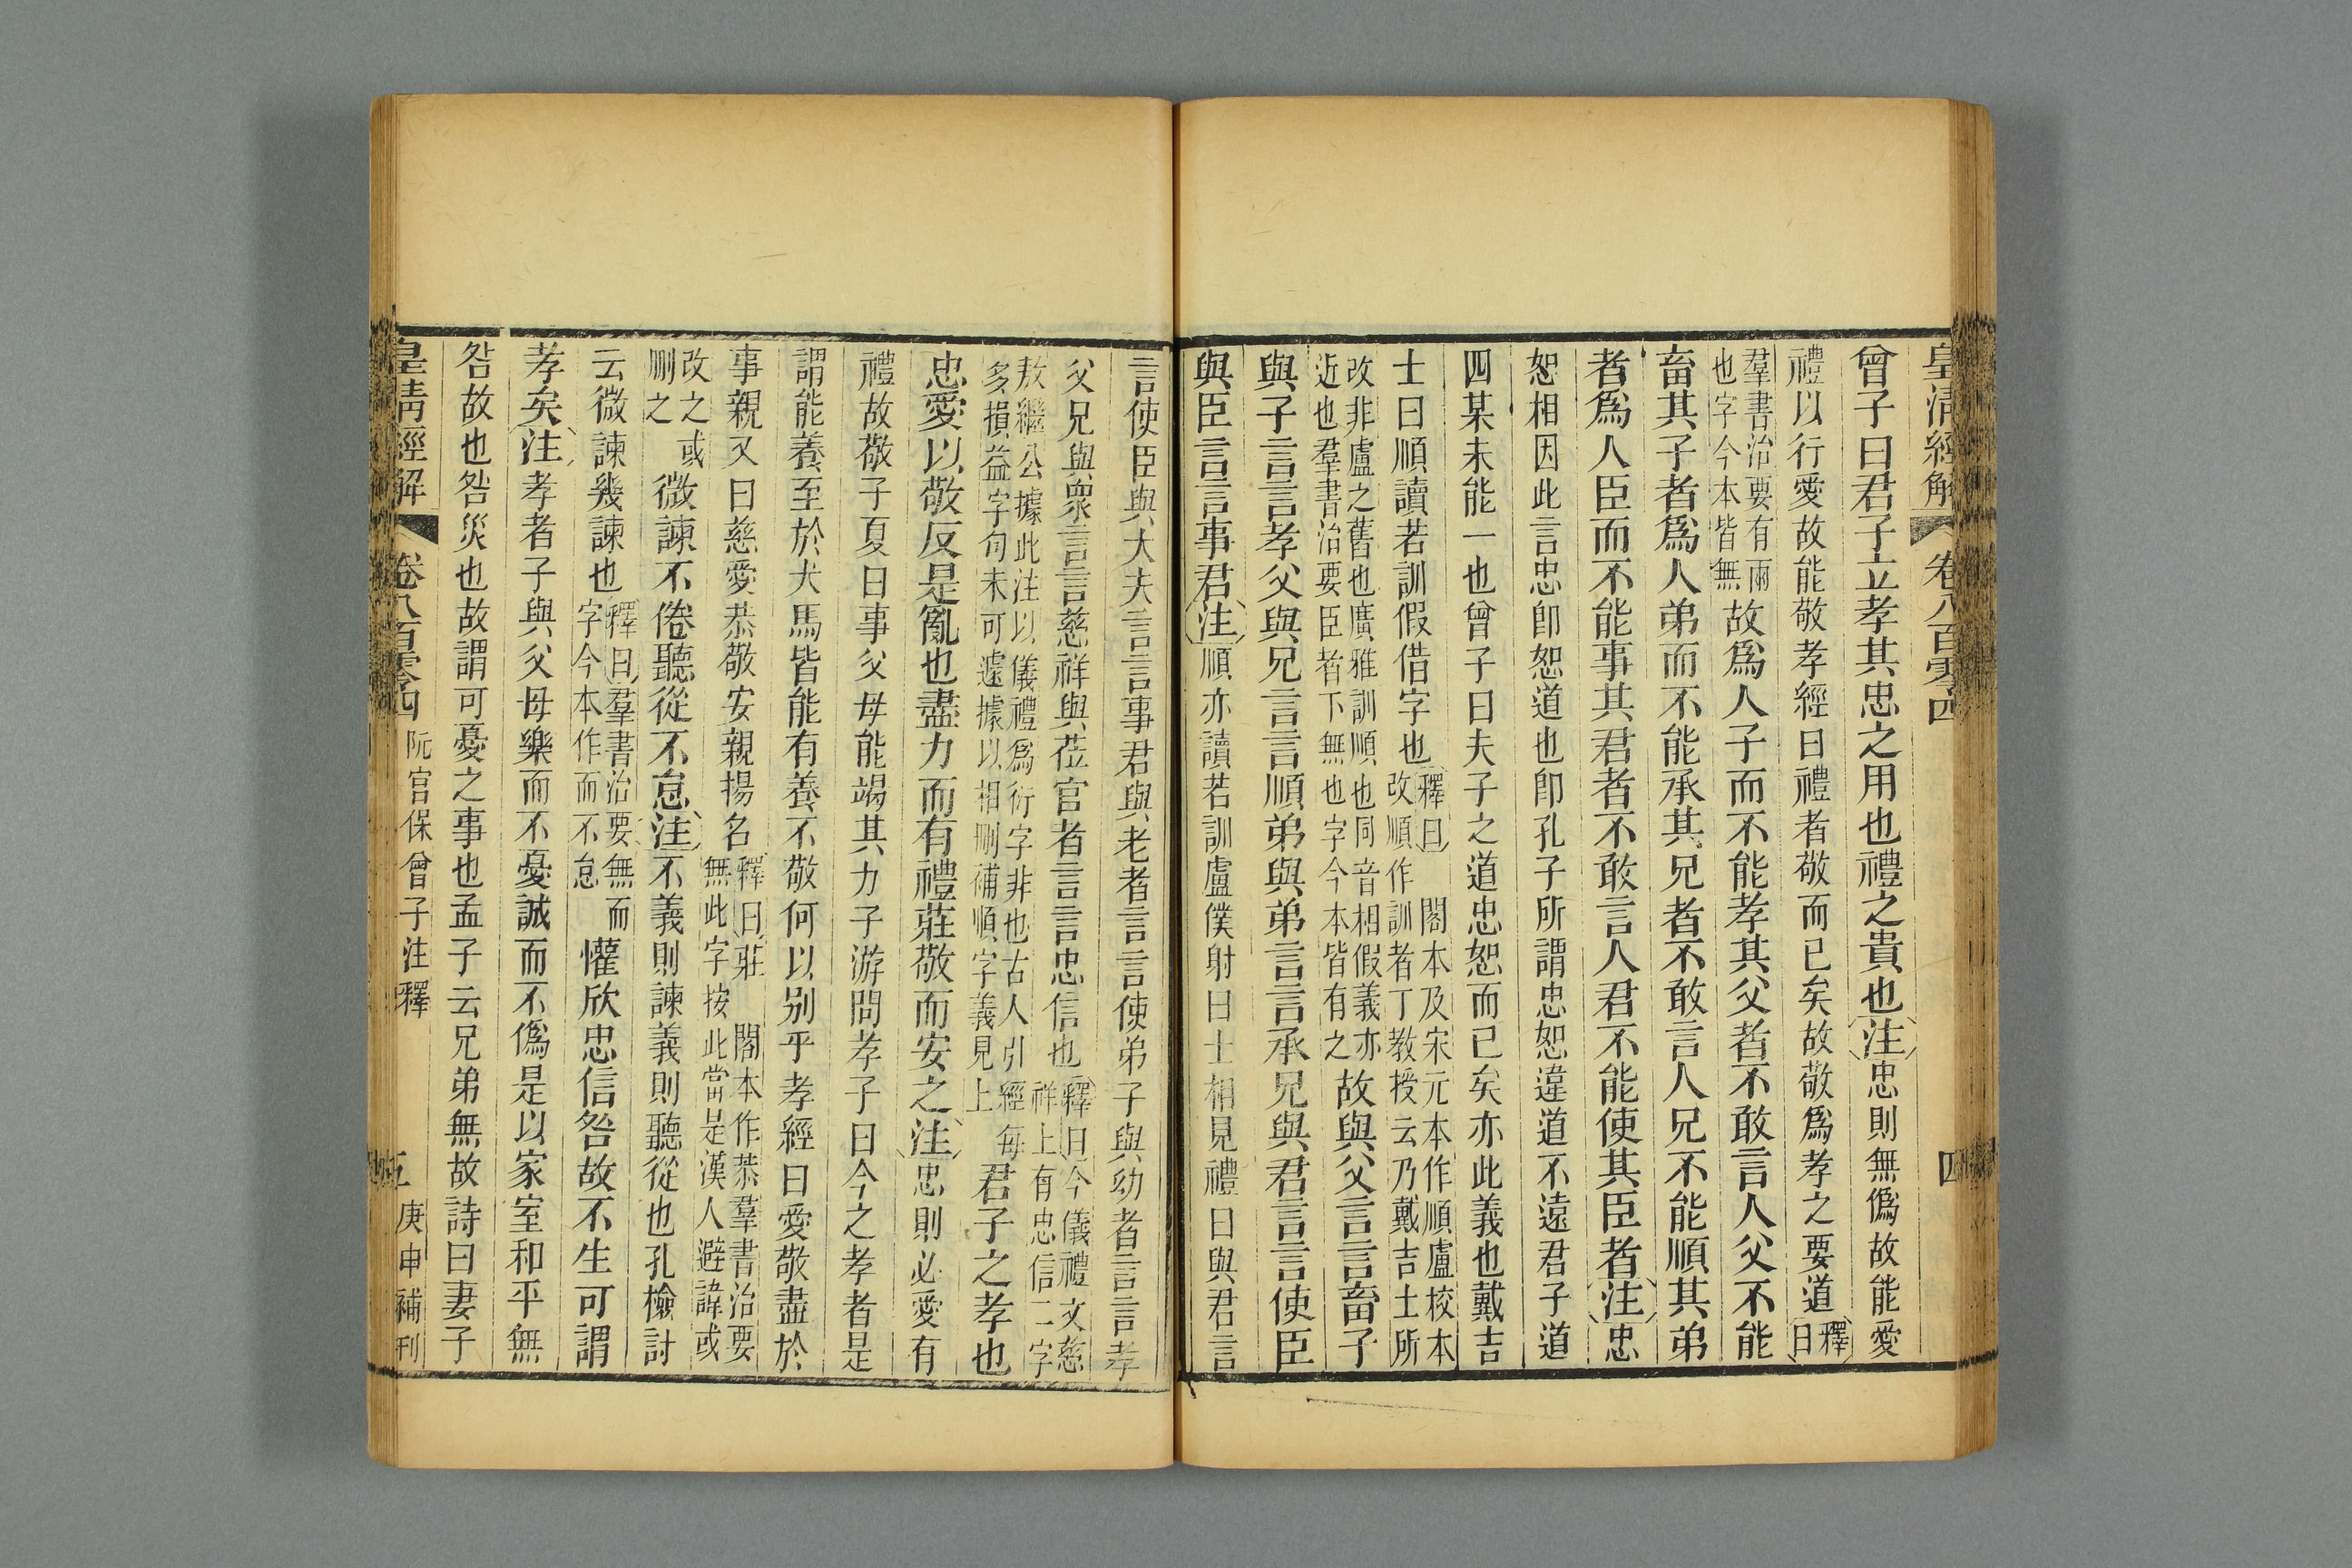 皇清經解 卷八百零四 四
曾子曰君子立孝其忠之用也禮之貴也注忠則無僞故能愛
禮以行愛故能敬孝經曰禮者敬而已矣故敬爲孝之要道釋曰
羣書治要有兩
也字今本皆無
故爲人子而不能孝其父者不敢言人父不能
畜其子者爲人弟而不能承其兄者不敢言人兄不能順其弟
者爲人臣而不能事其君者不敢言人君不能使其臣者注忠
恕相因此言忠卽恕道也卽孔子所謂忠恕違道不遠君子道
四某未能一也曾子曰夫子之道忠恕而已矣亦此義也戴吉
士曰順讀若訓假借字也
釋曰閣本及宋元本作順盧校本
改順作訓者丁教授云乃戴吉士所
改非盧之舊也廣雅訓順也同音相假義亦
近也羣書治要臣者下無也字今本皆有之
故與父言言畜子
與子言言孝父與兄言言順弟與弟言言承兄與君言言使臣
與臣言言事君注順亦讀若訓盧僕射曰士相見禮曰與君言
言使臣與大夫言言事君與老者言言使弟子與幼者言言孝
父兄與衆言言慈祥與莅官者言言忠信也
釋曰今儀禮文慈
祥上有忠信二字
敖繼公據此注以儀禮爲衍字非也古人引經每
多損益字句未可遽據以相刪補順字義見上
君子之孝也
忠愛以敬反是亂也盡力而有禮莊敬而安之注忠則必愛有
禮故敬子夏曰事父母能竭其力子游問孝子曰今之孝者是
謂能養至於犬馬皆能有養不敬何以别乎孝經曰愛敬盡於
事親又曰慈愛恭敬安親揚名
釋曰莊閣本作恭羣書治要
無此字按此當是漢人避諱或
改之或
刪之
微諫不倦聽從不怠注不義則諫義則聽從也孔檢討
云微諫幾諫也
釋曰羣書治要無而
字今本作而不怠
懽欣忠信咎故不生可謂
孝矣注孝者子與父母樂而不憂誠而不僞是以家室和平無
咎故也咎災也故謂可憂之事也孟子云兄弟無故詩曰妻子
皇清經解 卷八百零四 阮宫保曾子注釋 五 庚申補刊